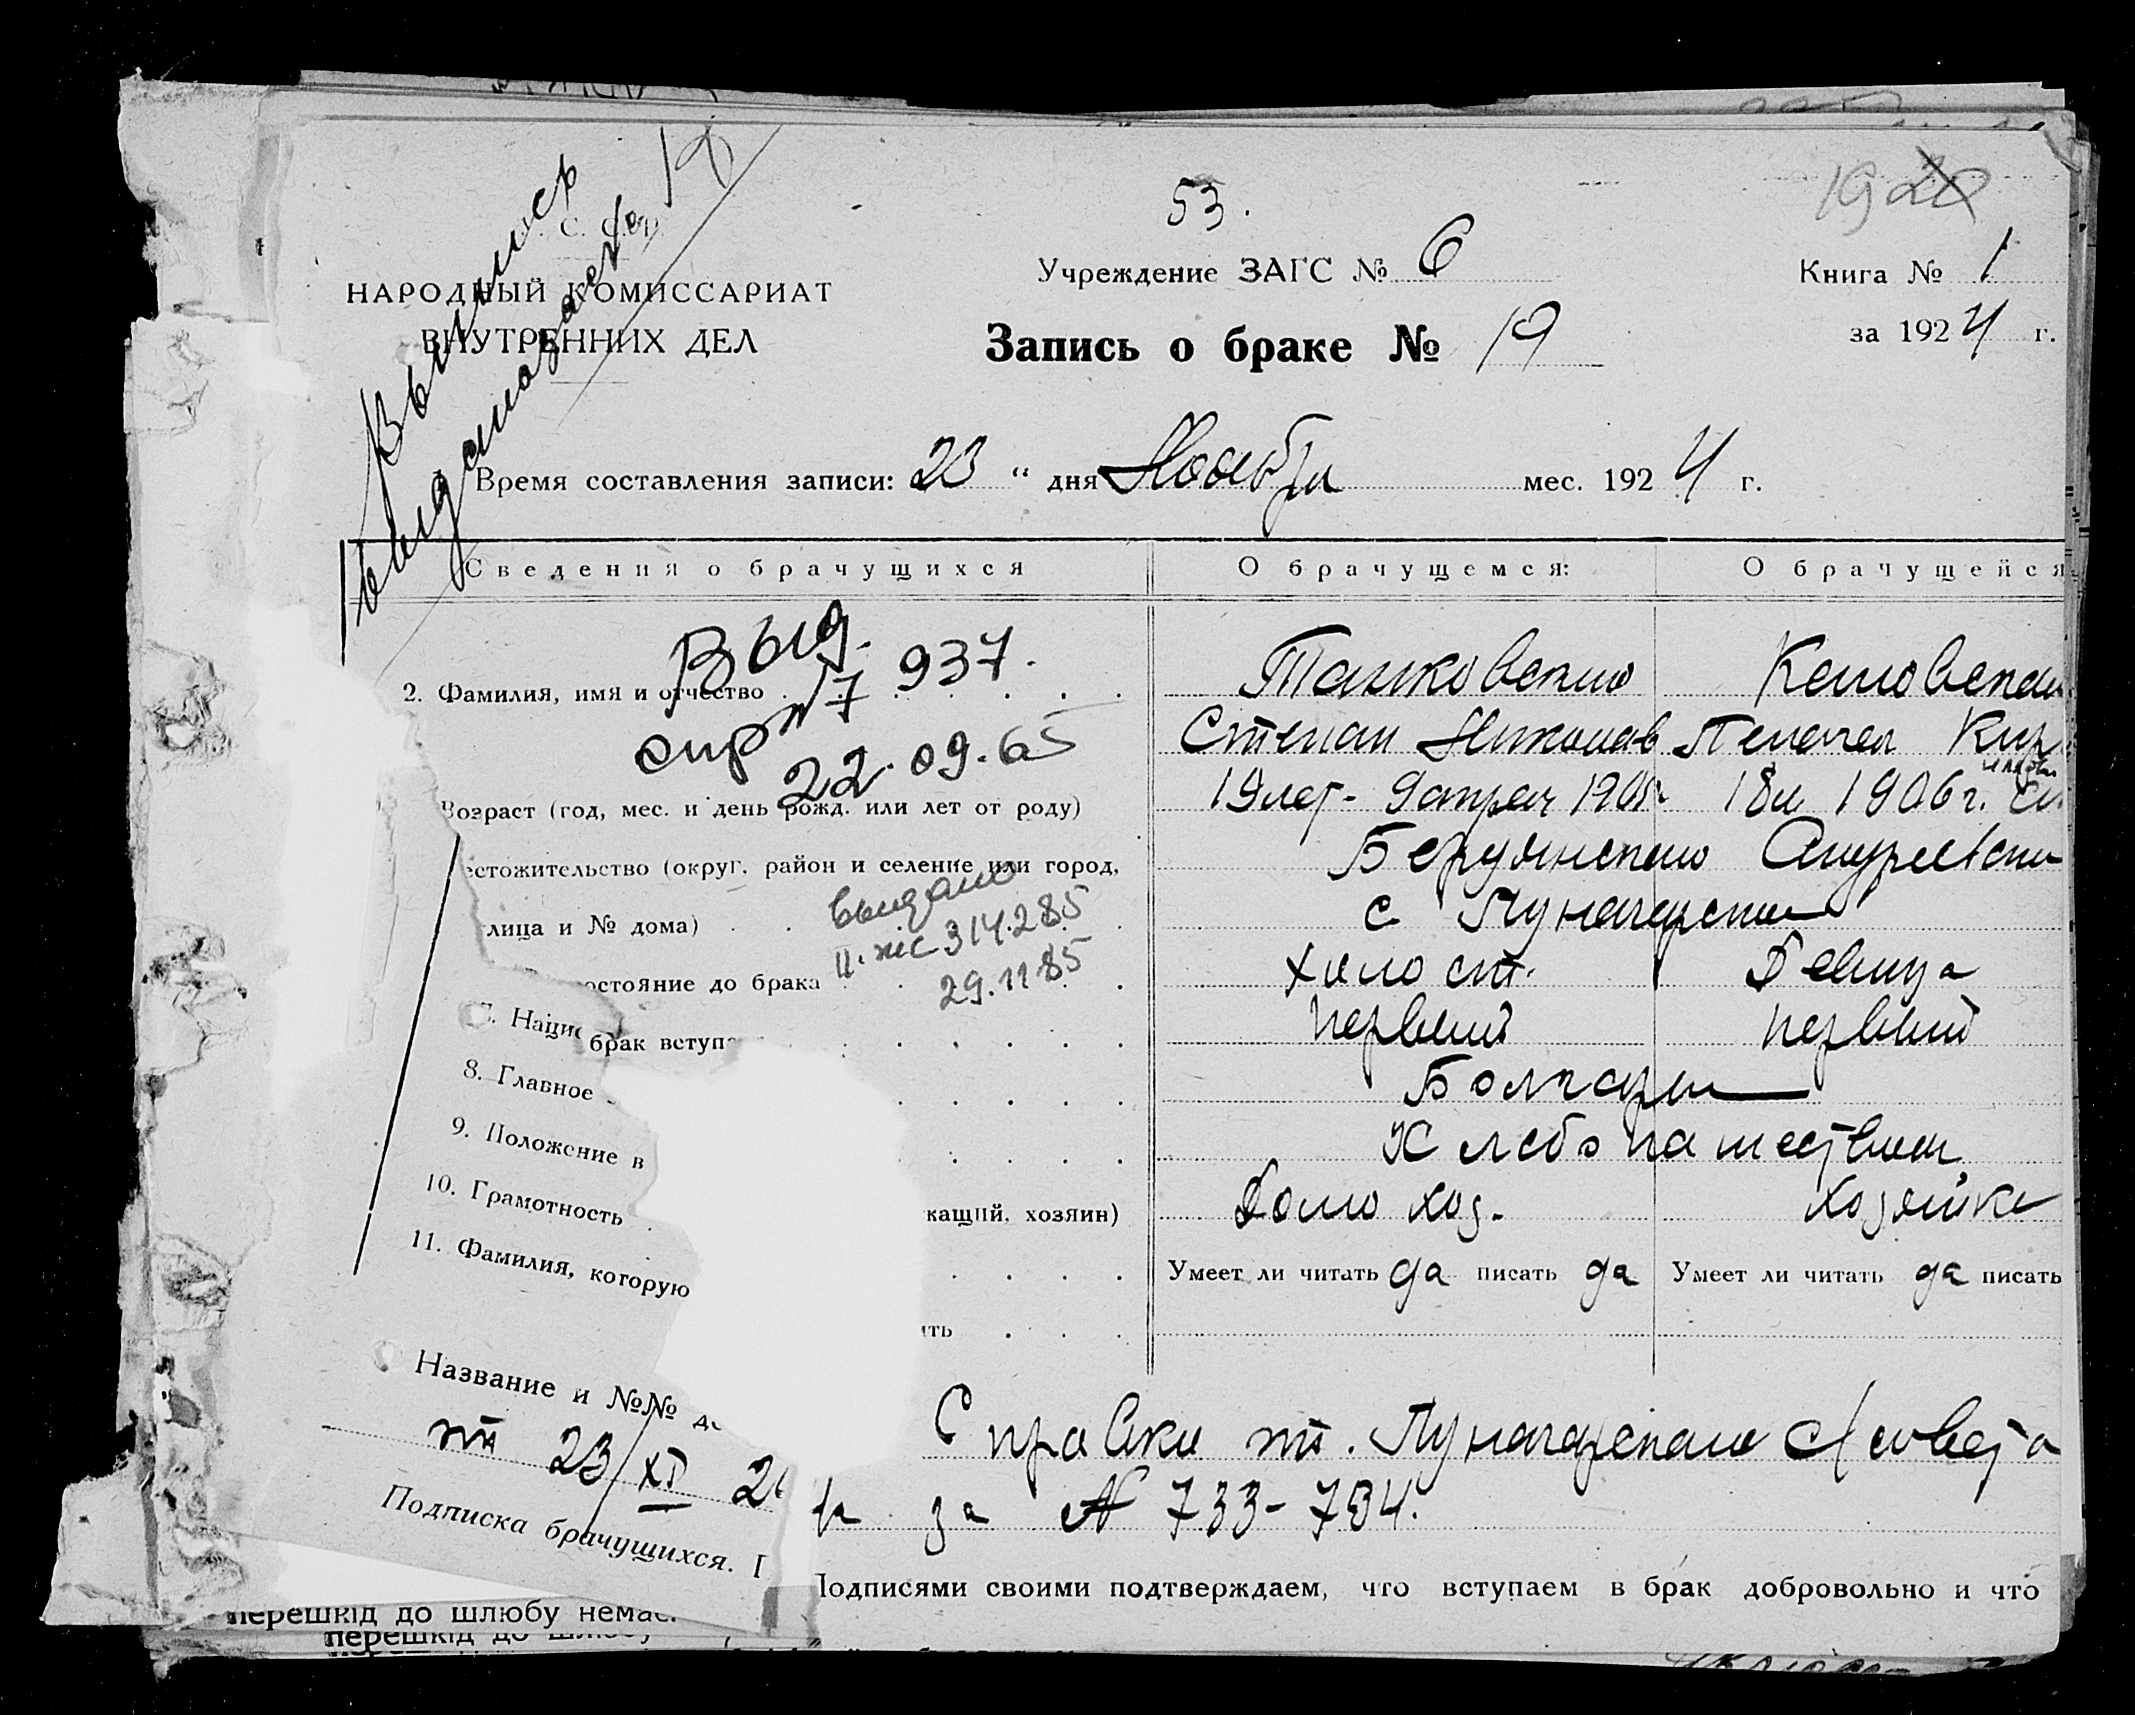 53.
192
С. С. Р.
НАРОДНЫЙ КОМИССАРИАТ
ВНУТРЕННИХ ДЕЛ
Учреждение ЗАГС № 6
Книга № 1
за 1924 г.
Запись о браке № 19
Выпись
выдана за № 19
Время составления записи: 23 " дня Ноября мес. 1924 г.
Сведения о брачущихся О брачущемся: О брачущейся
Выд.
937.
22.09.65
2. Фамилия, имя и отчество
Степан
Возраст (год, мес. и день рожд. или лет от роду) 19 лет - 9 апреля 1905 18 л 1906 г.
естожительство (округ, район и селение или город, Бердянского
лица и № дома) с Луначарское
выдано
II-жс 314285
29.11 85
остояние до брака холост. Девица
7. Нацис
брак вступа первый первый
8. Главное Болгары
9. Положение в Хлебопашеством
кащий, хозяин) Домохоз. хозяйка
10. Грамотность Умеет ли читать да писать да Умеет ли читать да писать
11. Фамилия, которую
ить
Название и №№ до
Справки от. Луначарского С/совета
от 23/XI 24 за № 733-734.
Подписка брачущихся. Г
Подписями своими подтверждаем, что вступаем в брак добровольно и что
перешкід до шлюбу немає.
перешкід до шлюбу